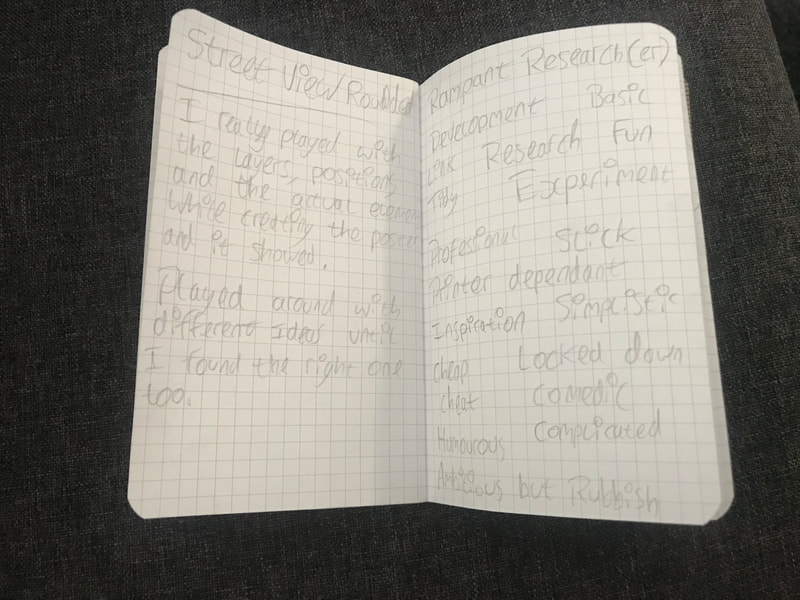 Street View
I really played with
the layers, position,
and the actual
While creating the poster
and it showed.
Played around with
different Ideas until
I found the right one
too.
Rampant Research(er)
Development Basic
Research Fun
Tidy Experiment
Profesional Slick
Printer dependant
Inspiration Simplistic
Cheap Locked down
Cheat Comedic
Humourous Complicated
Ambitious but Rubbish